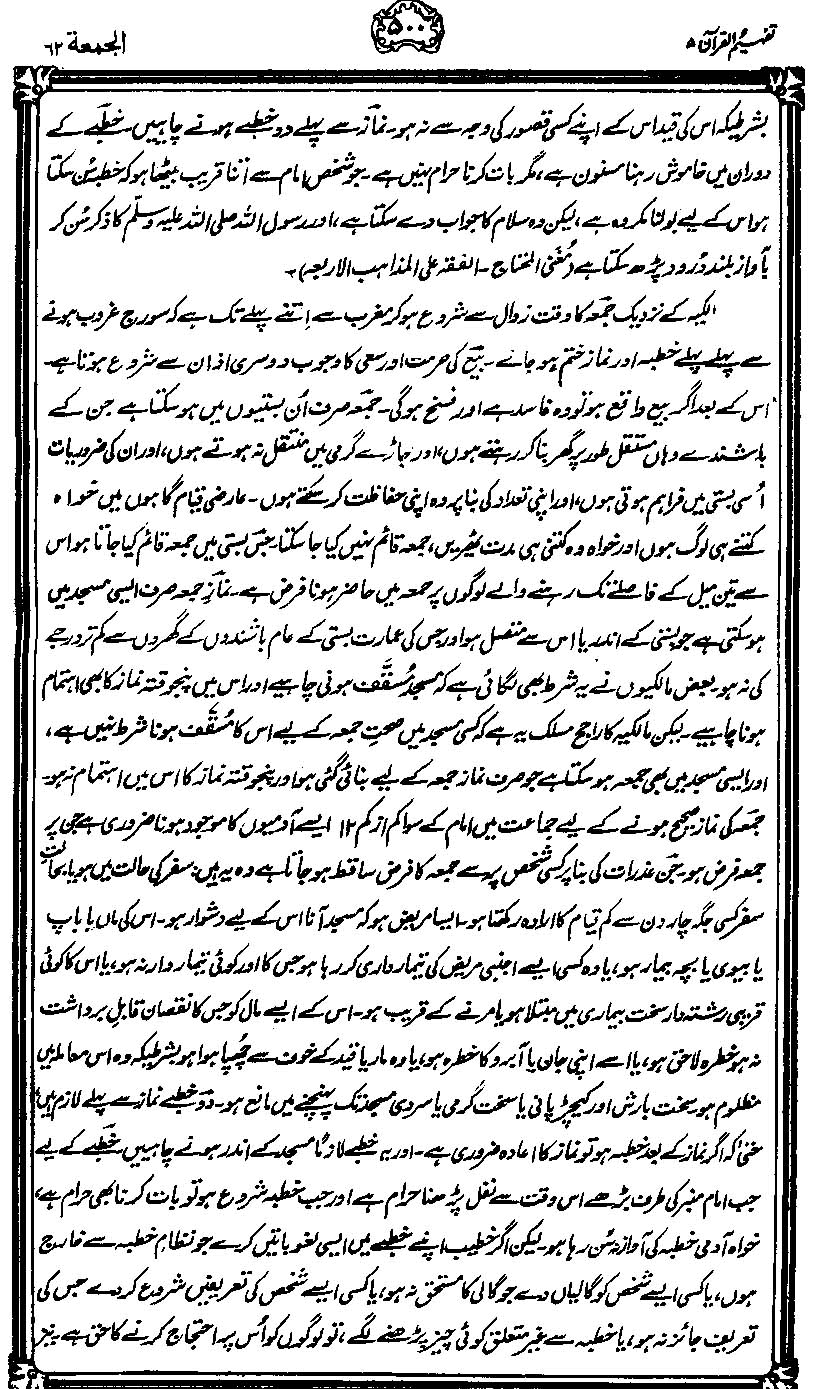 تفہیم القرآن ۵
۵۰۰
الجمعۃ ۶۲
بشرطیکہ اس کی قید اس کے اپنے کسی قصور کی وجہ سے نہ ہو۔ نماز سے پہلے دو خطبے ہونے چاہییں۔ خطبے کے
دوران میں خاموش رہنا مسنون ہے، مگر بات کرنا حرام نہیں ہے۔ جو شخص امام سے اتنا قریب بیٹھا ہو کہ خطبہ سُن سکتا
ہو اس کے لیے بولنا مکروہ ہے، لیکن وہ سلام کا جواب دے سکتا ہے، اور رسول اللہ صلی اللہ علیہ وسلّم کا ذکر سُن کر
بآواز بلند دُرود پڑھ سکتا ہے (مُغنی المحتاج۔ الفقہ علی المذاہب الاربعہ)۔
مالکیہ کے نزدیک جمعہ کا وقت زوال سے شروع ہو کر مغرب سے اِتنے پہلے تک ہے کہ سورج غروب ہونے
سے پہلے پہلے خطبہ اور نماز ختم ہو جائے۔ بیع کی حرمت اور سعی کا وجوب دوسری اذان سے شروع ہوتا ہے۔
اس کے بعد اگر بیع واقع ہو تو وہ فاسد ہے اور فسخ ہوگی۔ جمعہ صرف اُن بستیوں میں ہو سکتا ہے جن کے
باشندے وہاں مستقل طور پر گھر بنا کر رہتے ہوں، اور جاڑے گرمی میں منتقل نہ ہوتے ہوں، اور ان کی ضروریات
اُسی بستی میں فراہم ہوتی ہوں، اور اپنی تعداد کی بنا پر وہ اپنی حفاظت کر سکتے ہوں۔ عارضی قیام گاہوں میں خواہ
کتنے ہی لوگ ہوں اور خواہ وہ کتنی ہی مدت ٹھیریں، جمعہ قائم نہیں کیا جا سکتا۔ جس بستی میں جمعہ قائم کیا جاتا ہو اس
سے تین میل کے فاصلے تک رہنے والے لوگوں پر جمعہ میں حاضر ہونا فرض ہے۔ نمازِ جمعہ صرف ایسی مسجد میں
ہو سکتی ہے جو بستی کے اندر یا اس سے متصل ہو اور جس کی عمارت بستی کے عام باشندوں کے گھروں سے کم تر درجے
کی نہ ہو۔ بعض مالکیوں نے یہ شرط بھی لگائی ہے کہ مسجد مُسقَّف ہونی چاہیے اور اس میں پنجوقتہ نماز کا بھی اہتمام
ہونا چاہیے۔ لیکن مالکیہ کا راجح مسلک یہ ہے کہ کسی مسجد میں صحتِ جمعہ کے لیے اس کا مُسقَّف ہونا شرط نہیں ہے،
اور ایسی مسجد میں بھی جمعہ ہو سکتا ہے جو صرف نماز جمعہ کے لیے بنائی گئی ہو اور پنجوقتہ نماز کا اس میں اہتمام نہ ہو۔
جمعہ کی نماز صحیح ہونے کے لیے جماعت میں امام کے سوا کم از کم ۱۲ ایسے آدمیوں کا موجود ہونا ضروری ہے جن پر
جمعہ فرض ہو۔ جن عذرات کی بنا پر کسی شخص پر سے جمعہ کا فرض ساقط ہو جاتا ہے وہ یہ ہیں: سفر کی حالت میں ہو یا بحالت
سفر کسی جگہ چار دن سے کم قیام کا ارادہ رکھتا ہو۔ ایسا مریض ہو کہ مسجد آنا اس کے لیے دشوار ہو۔ اس کی ماں یا باپ
یا بیوی یا بچہ بیمار ہو، یا وہ کسی ایسے اجنبی مریض کی تیمارداری کر رہا ہو جس کا اور کوئی تیماردار نہ ہو، یا اس کا کوئی
قریبی رشتہ دار سخت بیماری میں مبتلا ہو یا مرنے کے قریب ہو۔ اس کے ایسے مال کو جس کا نقصان قابلِ برداشت
نہ ہو خطرہ لاحق ہو، یا اسے اپنی جان یا آبرو کا خطرہ ہو، یا وہ مار یا قید کے خوف سے چُھپا ہوا ہو بشرطیکہ وہ اس معاملہ میں
مظلوم ہو۔ سخت بارش اور کیچڑ پانی یا سخت گرمی یا سردی مسجد تک پہنچنے میں مانع ہو۔ دو خطبے نماز سے پہلے لازم ہیں
حتیٰ کہ اگر نماز کے بعد خطبہ ہو تو نماز کا اعادہ ضروری ہے۔ اور یہ خطبے لازمًا مسجد کے اندر ہونے چاہییں۔ خطبے کے لیے
جب امام منبر کی طرف بڑھے اس وقت سے نفل پڑھنا حرام ہے اور جب خطبہ شروع ہو تو بات کرنا بھی حرام ہے،
خواہ آدمی خطبہ کی آواز نہ سُن رہا ہو۔ لیکن اگر خطیب اپنے خطبے میں ایسی لغو باتیں کرے جو نظامِ خطبہ سے خارج
ہوں، یا کسی ایسے شخص کو گالیاں دے جو گالی کا مستحق نہ ہو، یا کسی ایسے شخص کی تعریفیں شروع کر دے جس کی
تعریف جائز نہ ہو، یا خطبہ سے غیر متعلق کوئی چیز پڑھنے لگے، تو لوگوں کو اُس پر احتجاج کرنے کا حق ہے۔ نیز